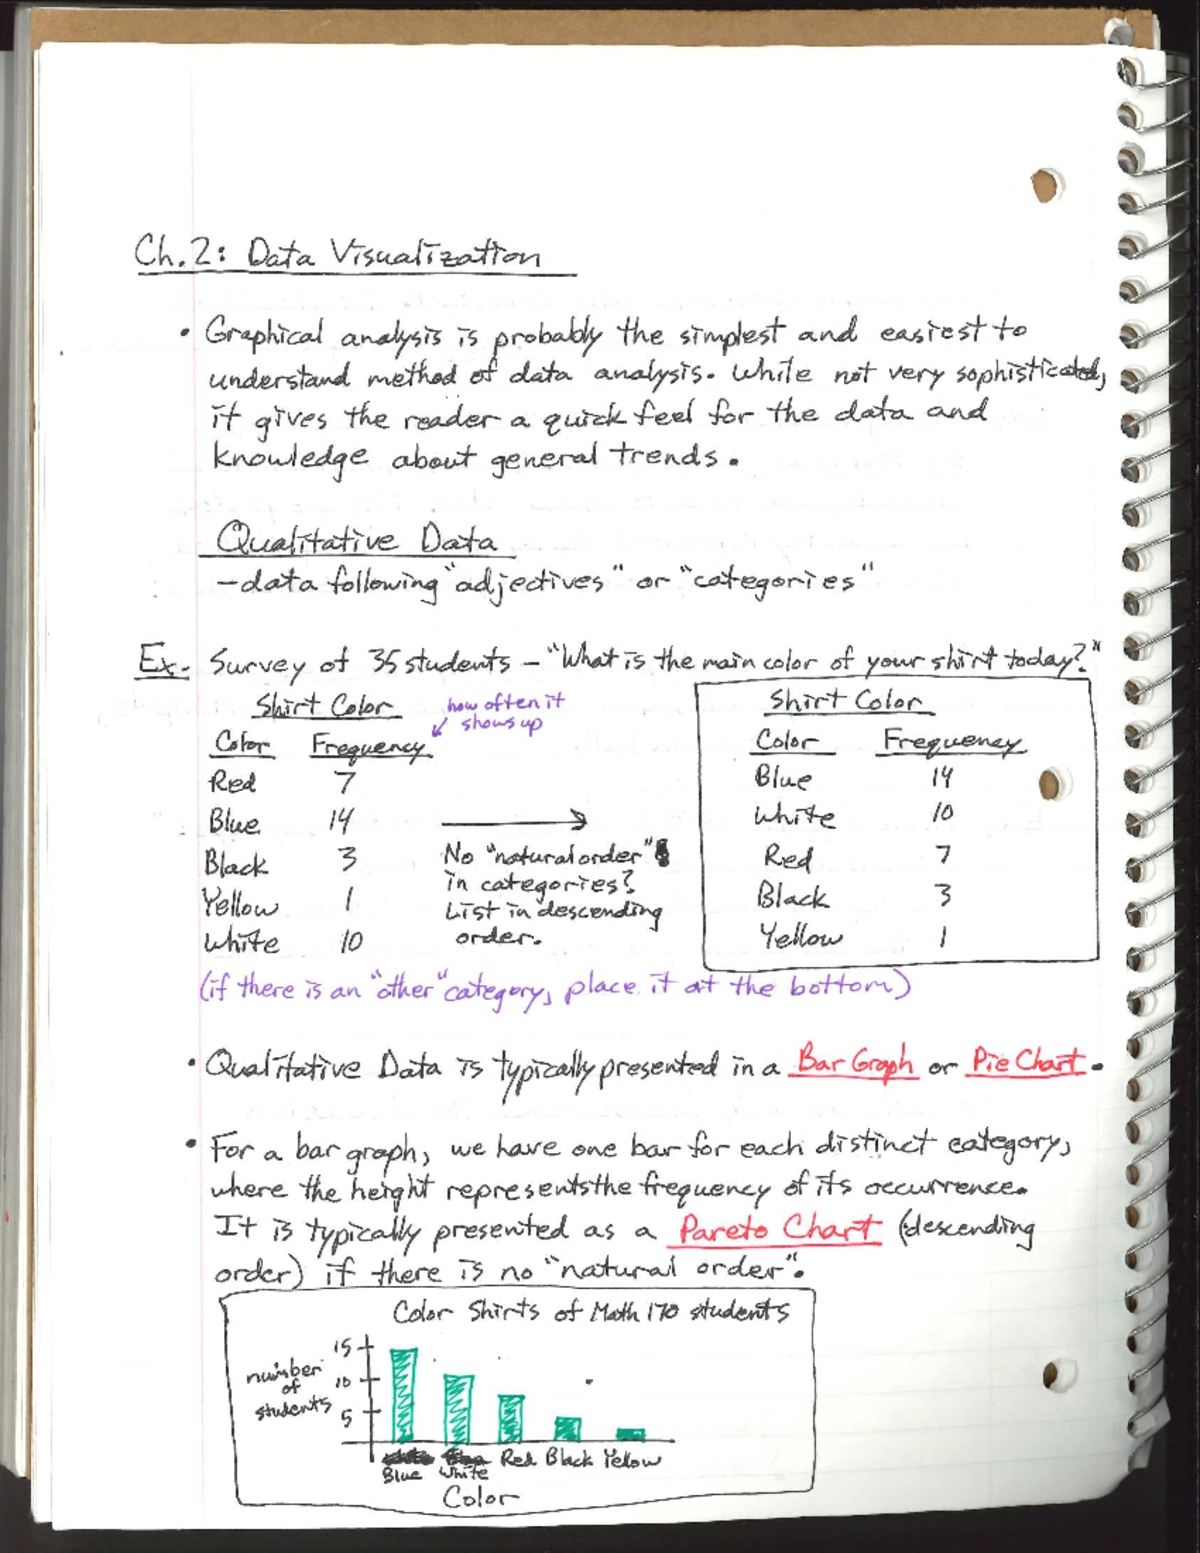 Ch.2: Data Visualization
• Graphical analysis is probably the simplest and easiest to
understand method of data analysis. While not very sophisticated,
it gives the reader a quick feel for the data and
knowledge about general trends.
Qualitative Data
- data following "adjectives" or "categories"
Ex. Survey of 35 students - "What is the main color of your shirt today?"
Shirt Color
how often it
shows up
Color Frequency
Red 7
Blue 14
Black 3
Yellow 1
White 10
No "natural order"
in categories?
List in descending
order.
Shirt Color
Color Frequency
Blue 14
White 10
Red 7
Black 3
Yellow 1
(if there is an "other" category, place it at the bottom)
• Qualitative Data is typically presented in a Bar Graph or Pie Chart.
• For a bar graph, we have one bar for each distinct category,
where the height represents the frequency of its occurrence.
It is typically presented as a Pareto Chart (descending
order) if there is no "natural order".
Color Shirts of Math 170 students
number
of
students
15
10
5
Blue White Red Black Yellow
Color